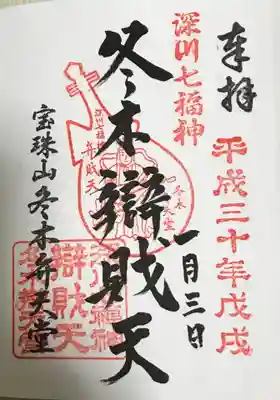 奉拝
平成三十年戊戌
一月三日
深川七福神
冬木辯財天
深川七福神
弁財天
冬木弁天堂
宝珠山冬木弁天堂
深川七福神
辯財天
冬木弁天堂